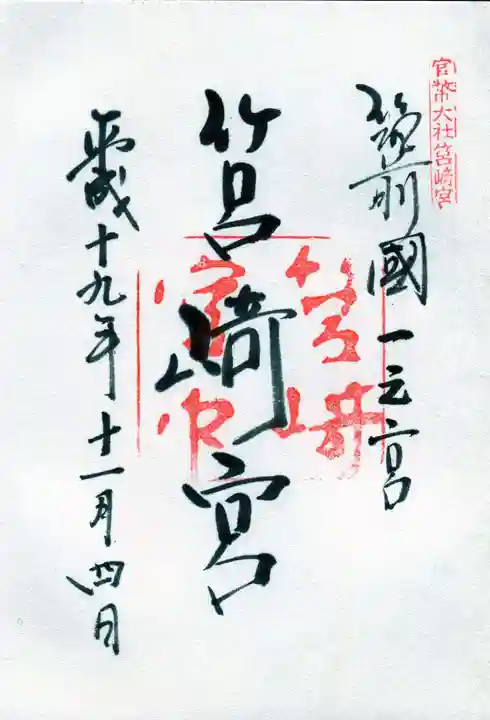 官幣大社筥崎宮
筑前國一之宮
筥崎宮
平成十九年十一月四日
筥崎
宮印